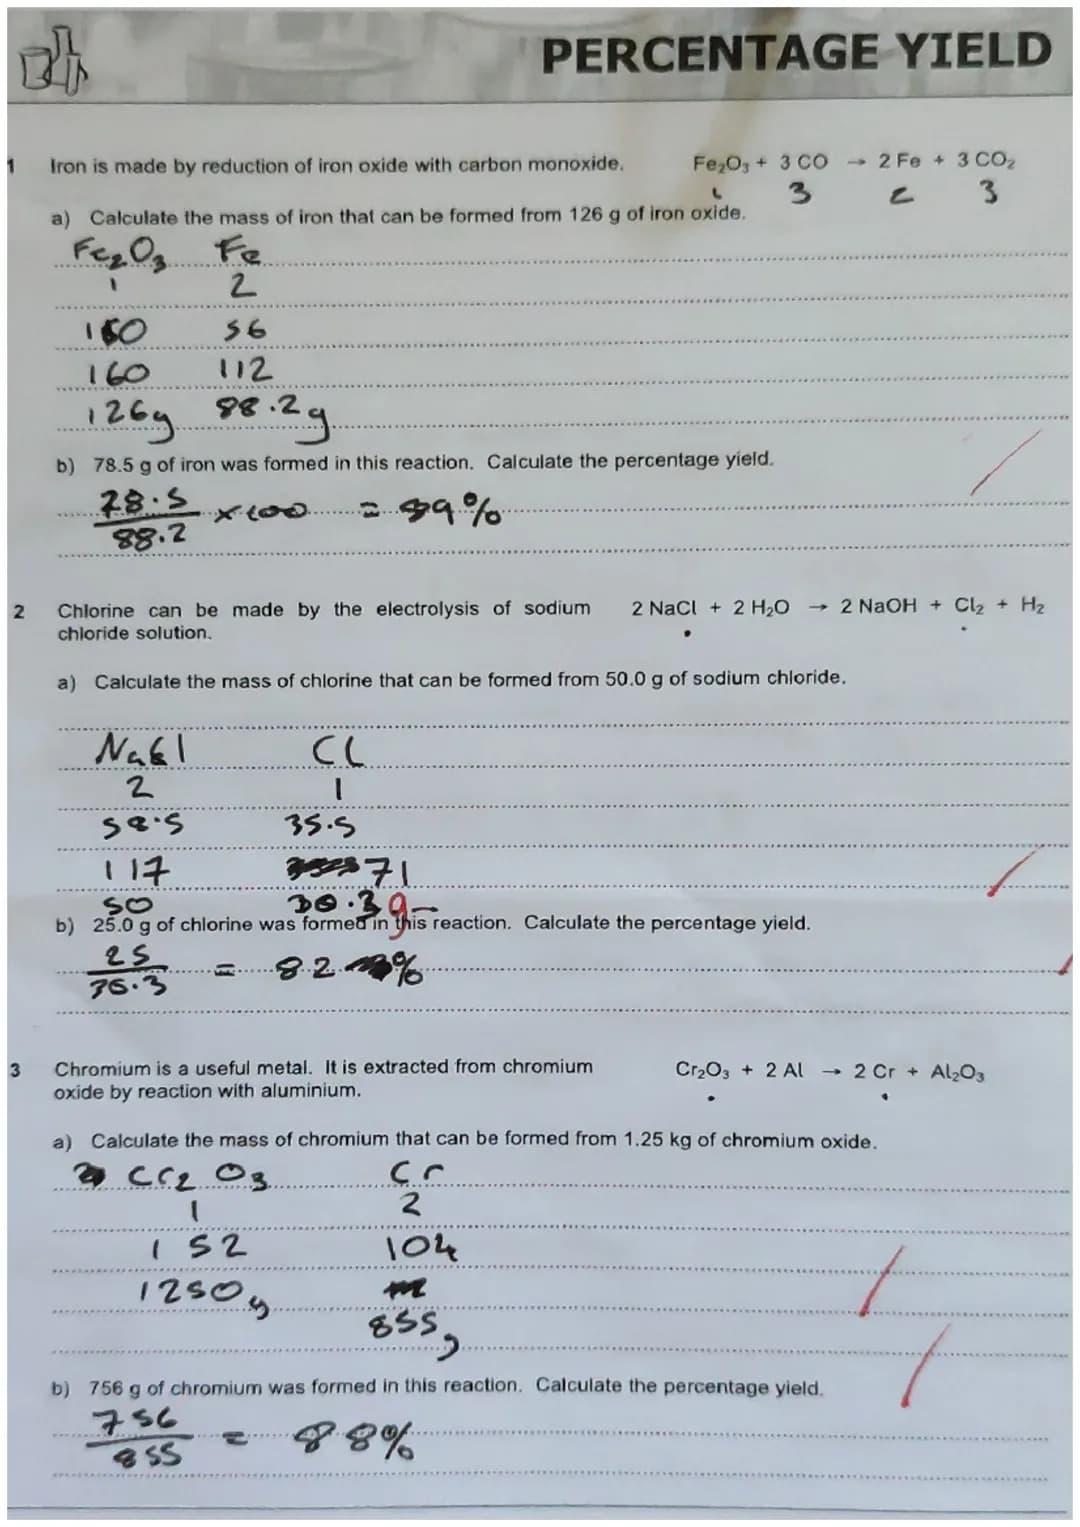 PERCENTAGE YIELD
1 Iron is made by reduction of iron oxide with carbon monoxide. Fe₂O₃ + 3 CO → 2 Fe + 3 CO₂
1 3 2 3
a) Calculate the mass of iron that can be formed from 126 g of iron oxide.
Fe₂O₃ Fe
1 2
160 56
160 112
126g 88.2g
b) 78.5 g of iron was formed in this reaction. Calculate the percentage yield.
78.5
88.2 × 100 = 89%
2 Chlorine can be made by the electrolysis of sodium 2 NaCl + 2 H₂O → 2 NaOH + Cl₂ + H₂
chloride solution.
a) Calculate the mass of chlorine that can be formed from 50.0 g of sodium chloride.
NaCl Cl
2 1
58.5 35.5
117 71
50 30.3g
b) 25.0 g of chlorine was formed in this reaction. Calculate the percentage yield.
25
30.3 = 82 %
3 Chromium is a useful metal. It is extracted from chromium Cr₂O₃ + 2 Al → 2 Cr + Al₂O₃
oxide by reaction with aluminium.
a) Calculate the mass of chromium that can be formed from 1.25 kg of chromium oxide.
Cr₂O₃ Cr
1 2
152 104
1250g
855g
b) 756 g of chromium was formed in this reaction. Calculate the percentage yield.
756
855 = 88%